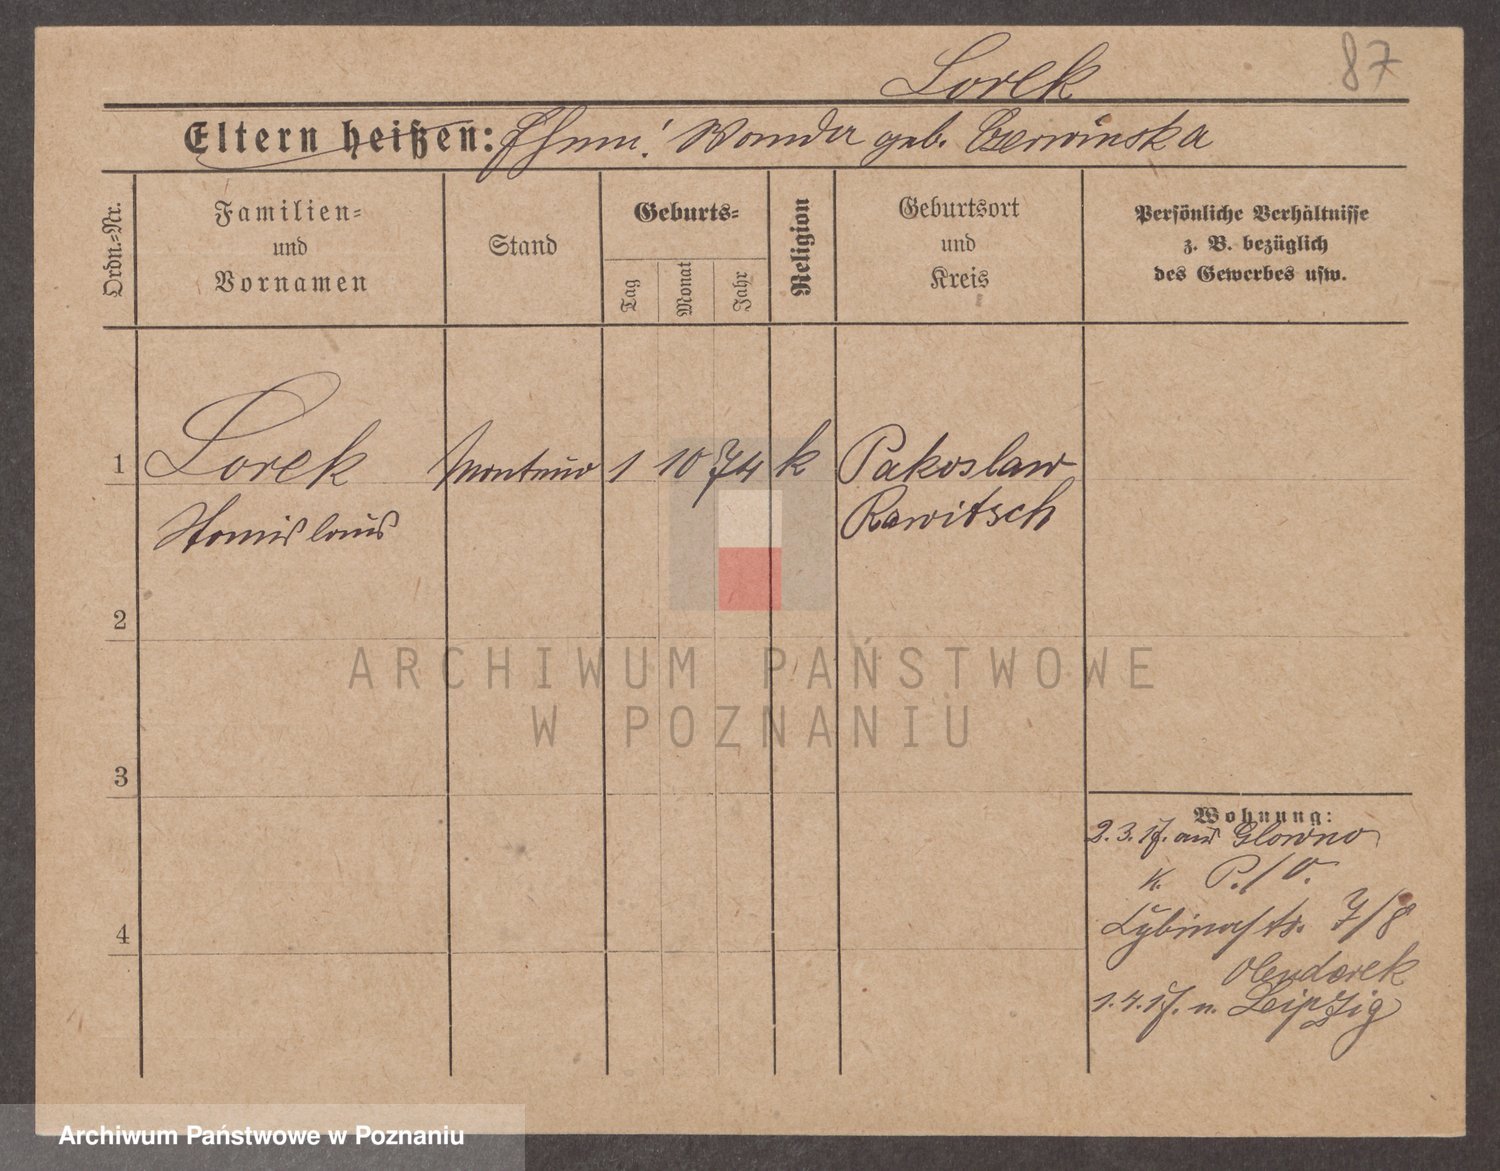 87
Lorek
Eltern heißen: Ehem! Wanda geb. Czerwinska
Ordn.-Nr.
Familien-
und
Vornamen
Stand
Geburts-
Tag
Monat
Jahr
Religion
Geburtsort
und
Kreis
Persönliche Verhältnisse
z. B. bezüglich
des Gewerbes usw.
1 Lorek Monteur 1 10 74 k Pakoslaw
Stanislaus Rawitsch
2
ARCHIWUM PAŃSTWOWE
W POZNANIU
3
Wohnung:
2.3.17. aus Glowno
K. P./O.
Cybinastr. 7/8
1.4.17. n. Leipzig
4
Archiwum Państwowe w Poznaniu